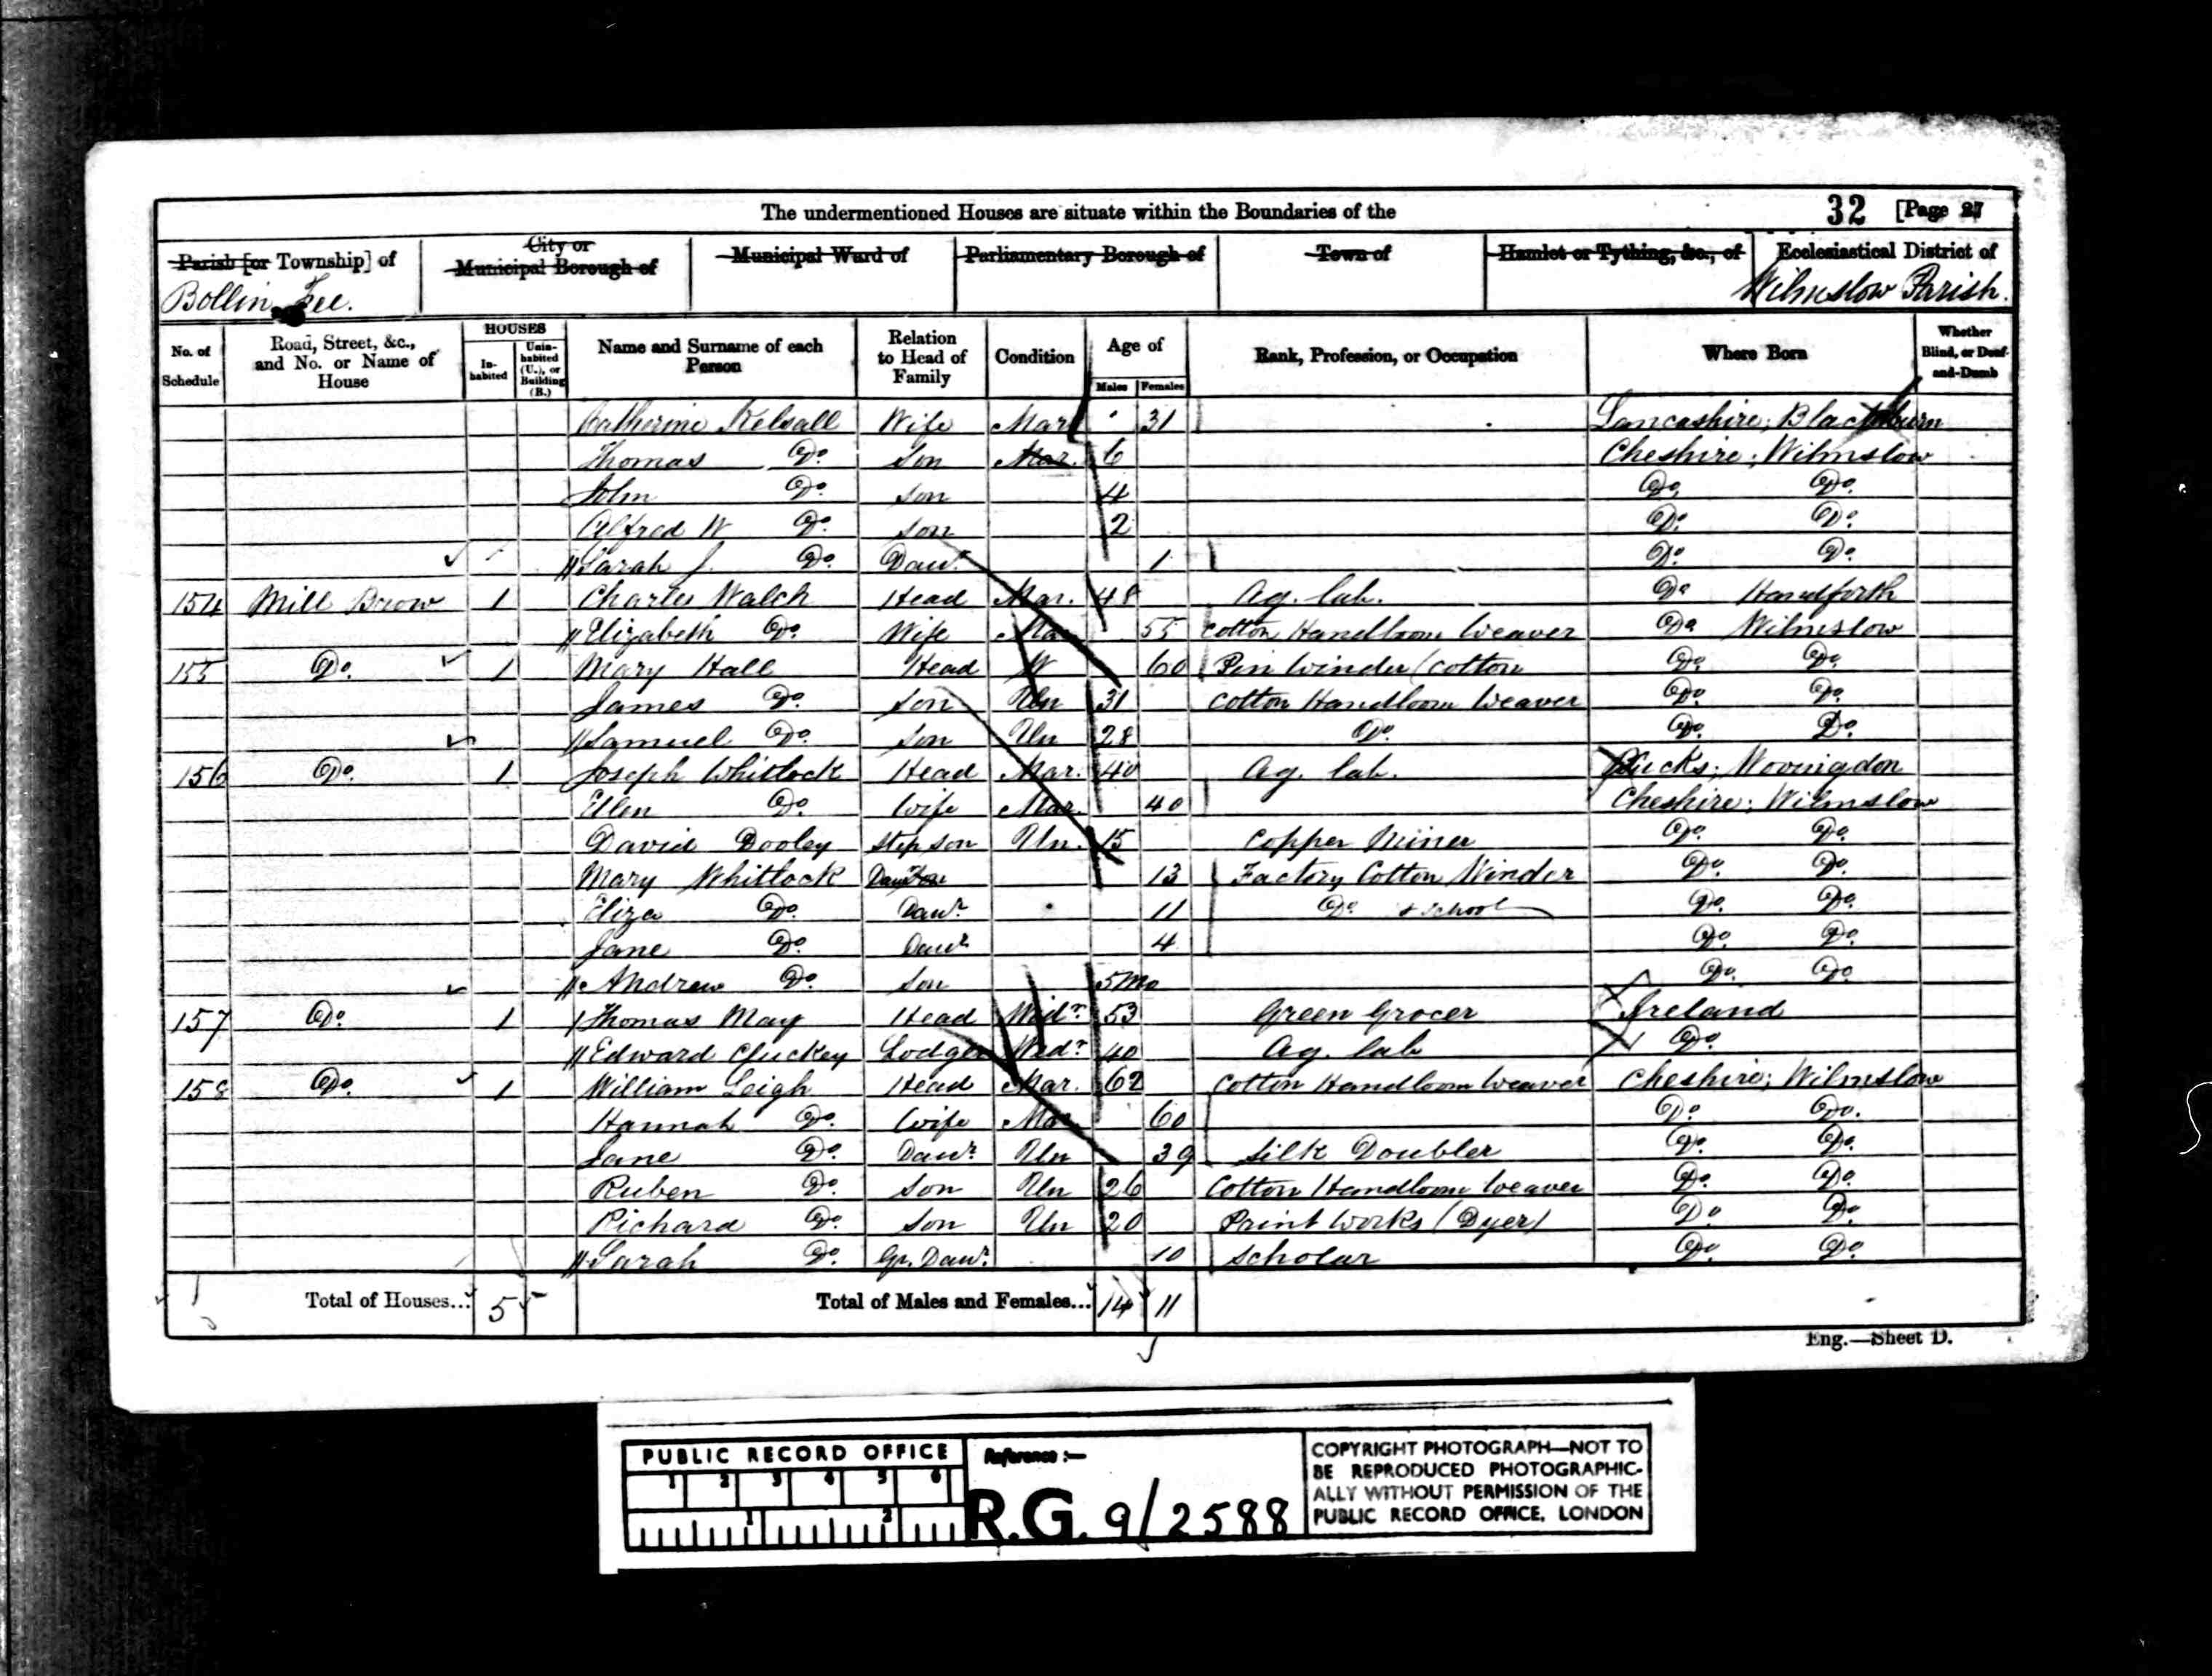 The undermentioned Houses are situate within the Boundaries of the 32 [Page 27
Parish [or Township] of City or Municipal Borough of Municipal Ward of Parliamentary Borough of Town of Hamlet or Tything, &c., of Ecclesiastical District of
Bollin Fee. Wilmslow Parish.
No. of Schedule Road, Street, &c., and No. or Name of House HOUSES Inhabited Uninhabited (U.), or Building (B.) Name and Surname of each Person Relation to Head of Family Condition Age of Males Females Rank, Profession, or Occupation Where Born Whether Blind, or Deaf-and-Dumb
Catherine Kelsall Wife Mar 31 Lancashire; Blackburn
Thomas Do. Son Mar. 6 Cheshire; Wilmslow
John Do. Son 4 Do. Do.
Alfred W Do. Son 2 Do. Do.
Sarah J. Do. Daur. 1 Do. Do.
154 Mill Brow 1 Charles Walch Head Mar. 48 Ag. lab. Do Handforth
Elizabeth Do. Wife Mar 55 Cotton Handloom Weaver Do Wilmslow
155 Do. 1 Mary Hall Head W 60 Pin Winder (Cotton Do. Do.
James Do. Son Un 31 Cotton Handloom Weaver Do. Do.
Samuel Do. Son Un 28 Do. Do. Do.
156 Do. 1 Joseph Whitlock Head Mar. 40 Ag. lab. Bucks;
Ellen Do. Wife Mar. 40 Cheshire; Wilmslow
David Dooley Stepson Un. 15 Copper Miner Do. Do.
Mary Whitlock Daur 13 Factory Cotton Winder Do. Do.
Eliza Do. Daur. 11 Do. & School Do. Do.
Jane Do. Daur. 4 Do. Do.
Andrew Do. Son 5mo Do. Do.
157 Do. 1 Thomas May Head Widr. 53 Green Grocer Ireland
Edward Cluckey Lodger Widr. 40 Ag. lab Do.
158 Do. 1 William Leigh Head Mar. 62 Cotton Handloom Weaver Cheshire; Wilmslow
Hannah Do. Wife Mar 60 Do. Do.
Jane Do. Daur. Un 39 Silk Doubler Do. Do.
Ruben Do. Son Un 26 Cotton Handloom Weaver Do. Do.
Richard Do. Son Un 20 Print Works (Dyer) Do. Do.
Sarah Do. Gr. Daur. 10 Scholar Do. Do.
Total of Houses... 5 Total of Males and Females... 14 11
Eng.—Sheet D.
PUBLIC RECORD OFFICE
1 2 3 4 5 6
1 2
Reference:—
R.G. 9/2588
COPYRIGHT PHOTOGRAPH—NOT TO
BE REPRODUCED PHOTOGRAPHIC-
ALLY WITHOUT PERMISSION OF THE
PUBLIC RECORD OFFICE, LONDON